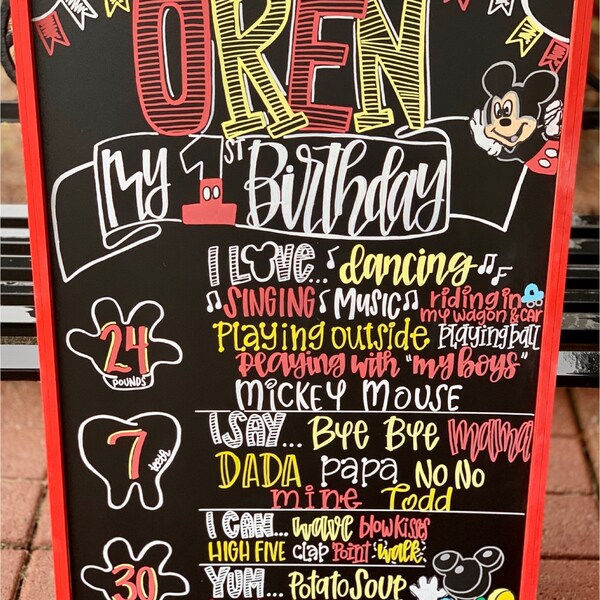 OREN
My 1st Birthday
I LOVE... dancing
SINGING MUSIC riding in
my wagon & car
Playing outside playing ball
Playing with "my boys"
MICKEY MOUSE
24
POUNDS
I SAY... Bye Bye mama
DADA papa NO NO
mine Todd
7
teeth
I CAN... wave blow kisses
HIGH FIVE clap Point walk
30
YUM... Potato Soup